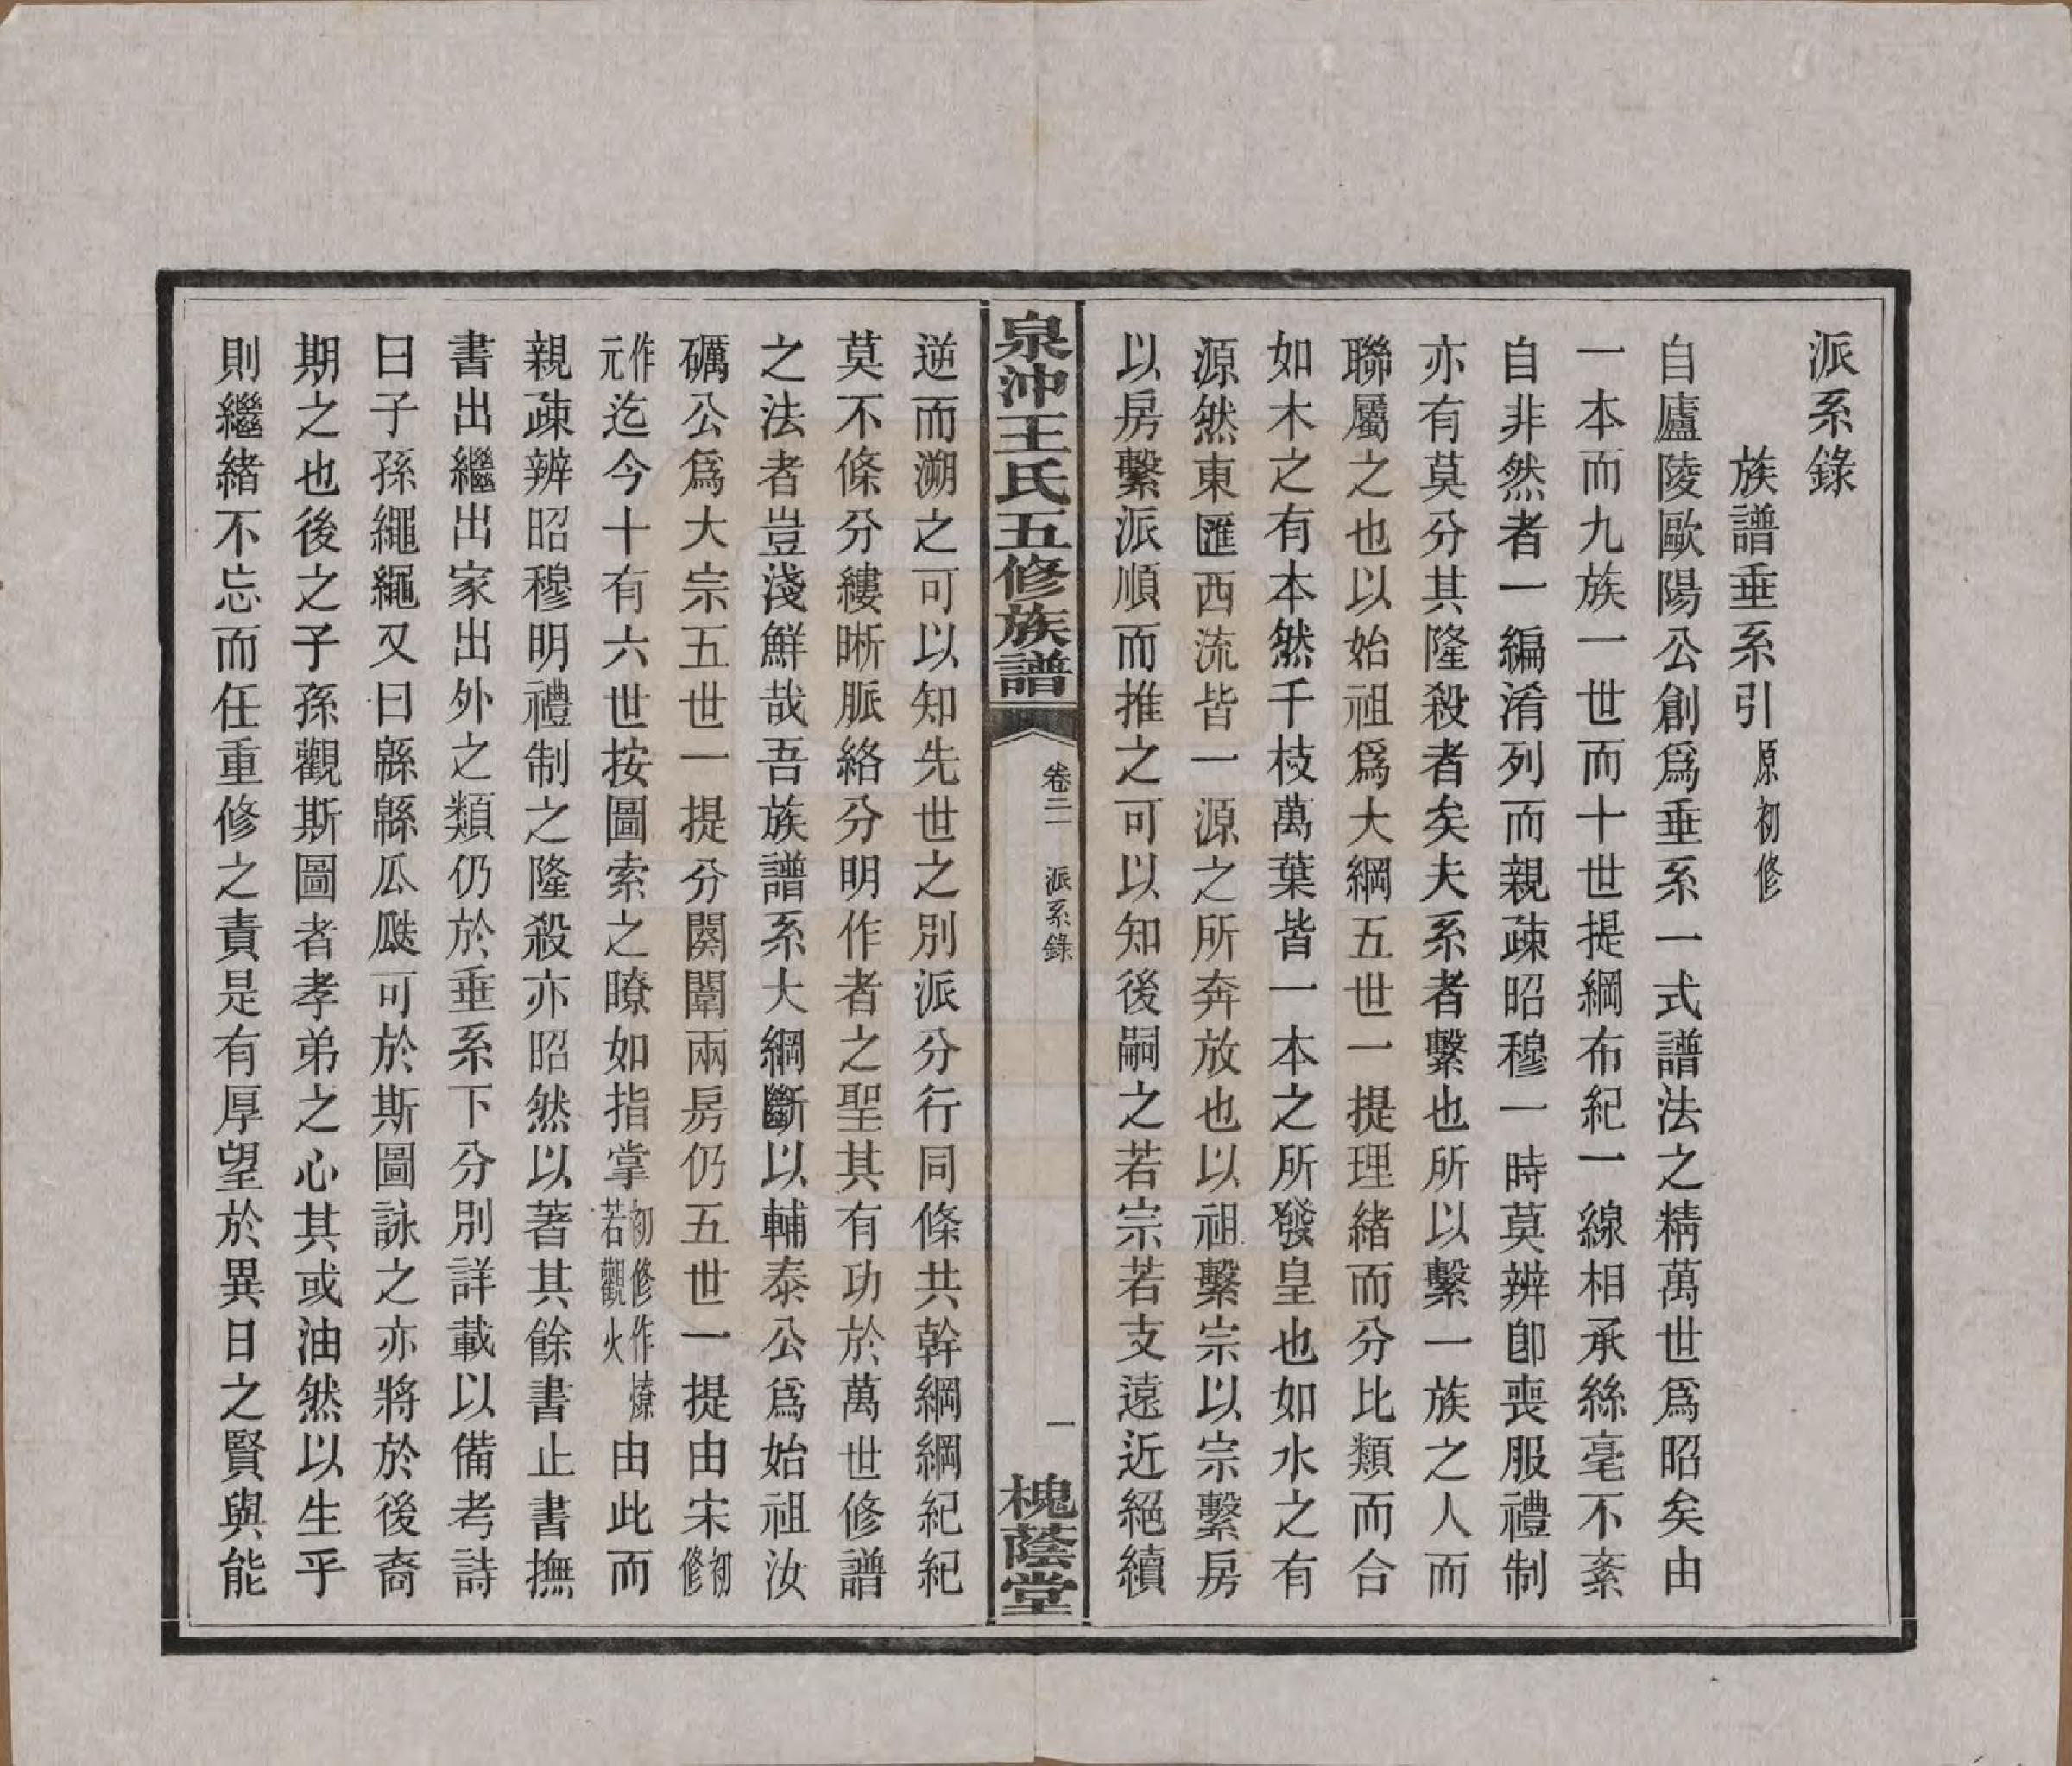 派系錄
族譜垂系引原初修
自廬陵歐陽公創爲垂系一式譜法之精萬世爲昭矣由
一本而九族一世而十世提綱布紀一線相承絲毫不紊
自非然者一編淆列而親疎昭穆一時莫辨卽喪服禮制
亦有莫分其隆殺者矣夫系者繫也所以繫一族之人而
聯屬之也以始祖爲大綱五世一提理緒而分比類而合
如木之有本然千枝萬葉皆一本之所發皇也如水之有
源然東匯西流皆一源之所奔放也以祖繫宗以宗繫房
以房繫派順而推之可以知後嗣之若宗若支遠近絕續
泉沖王氏五修族譜
卷二
派系錄
一
槐蔭堂
逆而溯之可以知先世之別派分行同條共幹綱綱紀紀
莫不條分縷晰脈絡分明作者之聖其有功於萬世修譜
之法者豈淺鮮哉吾族譜系大綱斷以輔泰公爲始祖汝
礪公爲大宗五世一提分闋闈兩房仍五世一提由宋初修
作元迄今十有六世按圖索之瞭如指掌初修作燎若觀火由此而
親疎辨昭穆明禮制之隆殺亦昭然以著其餘書止書撫
書出繼出家出外之類仍於垂系下分別詳載以備考詩
曰子孫繩繩又曰緜緜瓜瓞可於斯圖詠之亦將於後裔
期之也後之子孫觀斯圖者孝弟之心其或油然以生乎
則繼緒不忘而任重修之責是有厚望於異日之賢與能